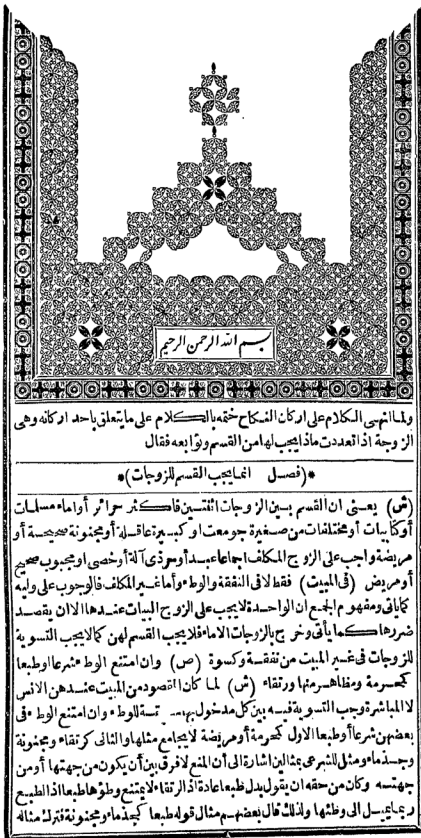 بسم الله الرحمن الرحيم
ولما انتهى الكلام على اركان النكاح ختمه بالكلام على ما يتعلق باحد اركانه وهى
الزوجة اذا تعددت ماذا يجب لها من القسم وتوابعه فقال
*(فصل انما يجب القسم للزوجات)*
(ش) يعنى ان القسم بين الزوجات اثنتين فاكثر حرائر أو اماء مسلمات
أو كتابيات أو مختلفات من صغيرة جومعت او كبيرة عاقلة أو مجنونة صحيحة أو
مريضة واجب على الزوج المكلف اجماعا عبد أو حر ذى آلة أو خصى او مجبوب صحيح
أو مريض (فى المبيت) فقط لا فى النفقة والوطء وأما غير المكلف فالوجوب على وليه
كما يأتى ومفهوم الجمع ان الواحدة لا يجب على الزوج البيات عندها الا ان يقصد
ضررها كما يأتى وخرج بالزوجات الاماء فلا يجب القسم لهن كما لا يجب التسوية
للزوجات فى غير المبيت من نفقة وكسوة (ص) وان امتنع الوطء شرعا او طبعا
كمحرمة ومظاهر منها ورتقاء (ش) لما كان المقصود من المبيت عندهن الانس
لا المباشرة وجب التسوية فيه بين كل مدخول بهـ للوطء وان امتنع الوطء فى
بعضهن شرعا أو طبعا الاول كمحرمة أو مريضة لا يجامع مثلها والثانى كرتقاء ومجنونة
وجذماء ومثل للشرعى بمثالين اشارة الى أن المنع لا فرق بين أن يكون من جهتها أو من
جهته وكان من حقه ان يقول بدل طبعا عادة اذ الرتقاء لا يمتنع وطؤها طبعا اذ الطبع
ربما يميل الى وطئها ولذلك قال بعضهم مثال قوله طبعا كجذماء ومجنونة فترك مثاله